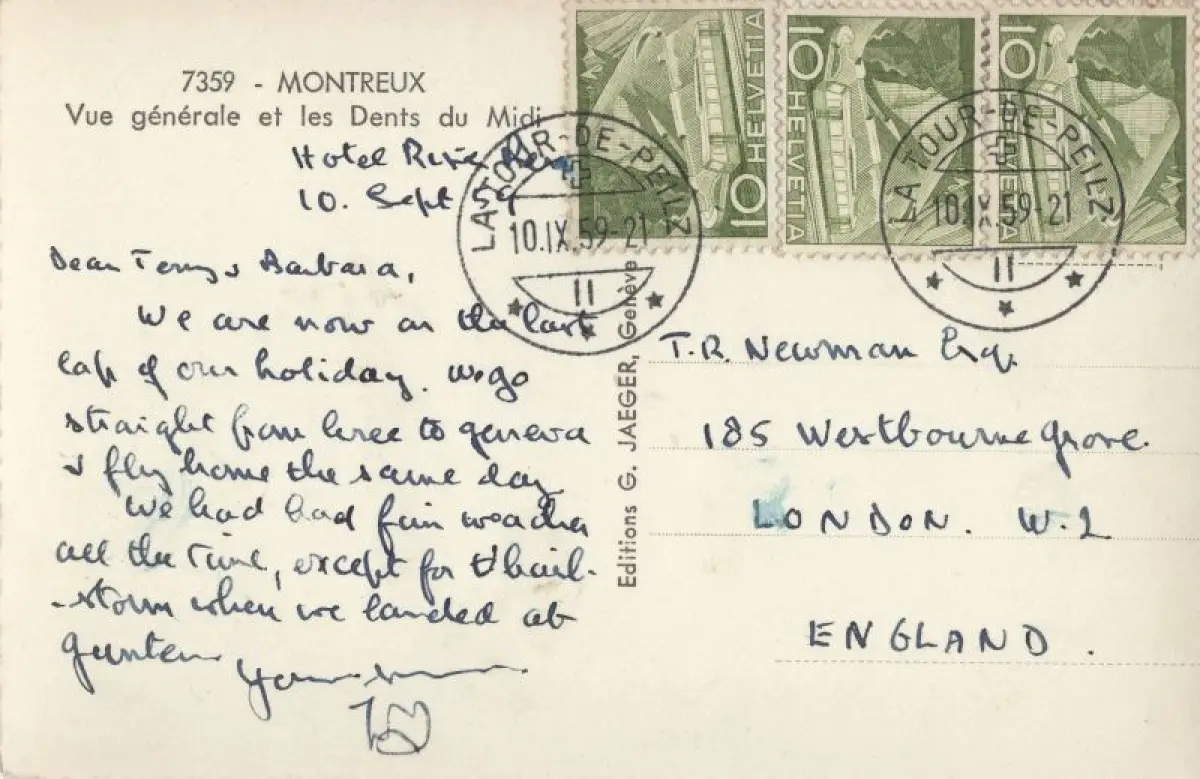 7359 - MONTREUX
Vue générale et les Dents du Midi
Hotel Rive
10. Sept 59
Dear Terry & Barbara,
We are now on the last
lap of our holiday. We go
straight from here to geneva
& fly home the same day
We had had fair weather
all the time, except for hail-
-storm when we landed at
gunten
Editions G. JAEGER, Genève
10 HELVETIA
10 HELVETIA
10 HELVETIA
LA TOUR-DE-PEILZ
10.IX.59-21
II
LA TOUR-DE-PEILZ
10.IX.59-21
II
T.R. Newman Esq.
185 Westbourne Grove.
LONDON. W.2
ENGLAND.